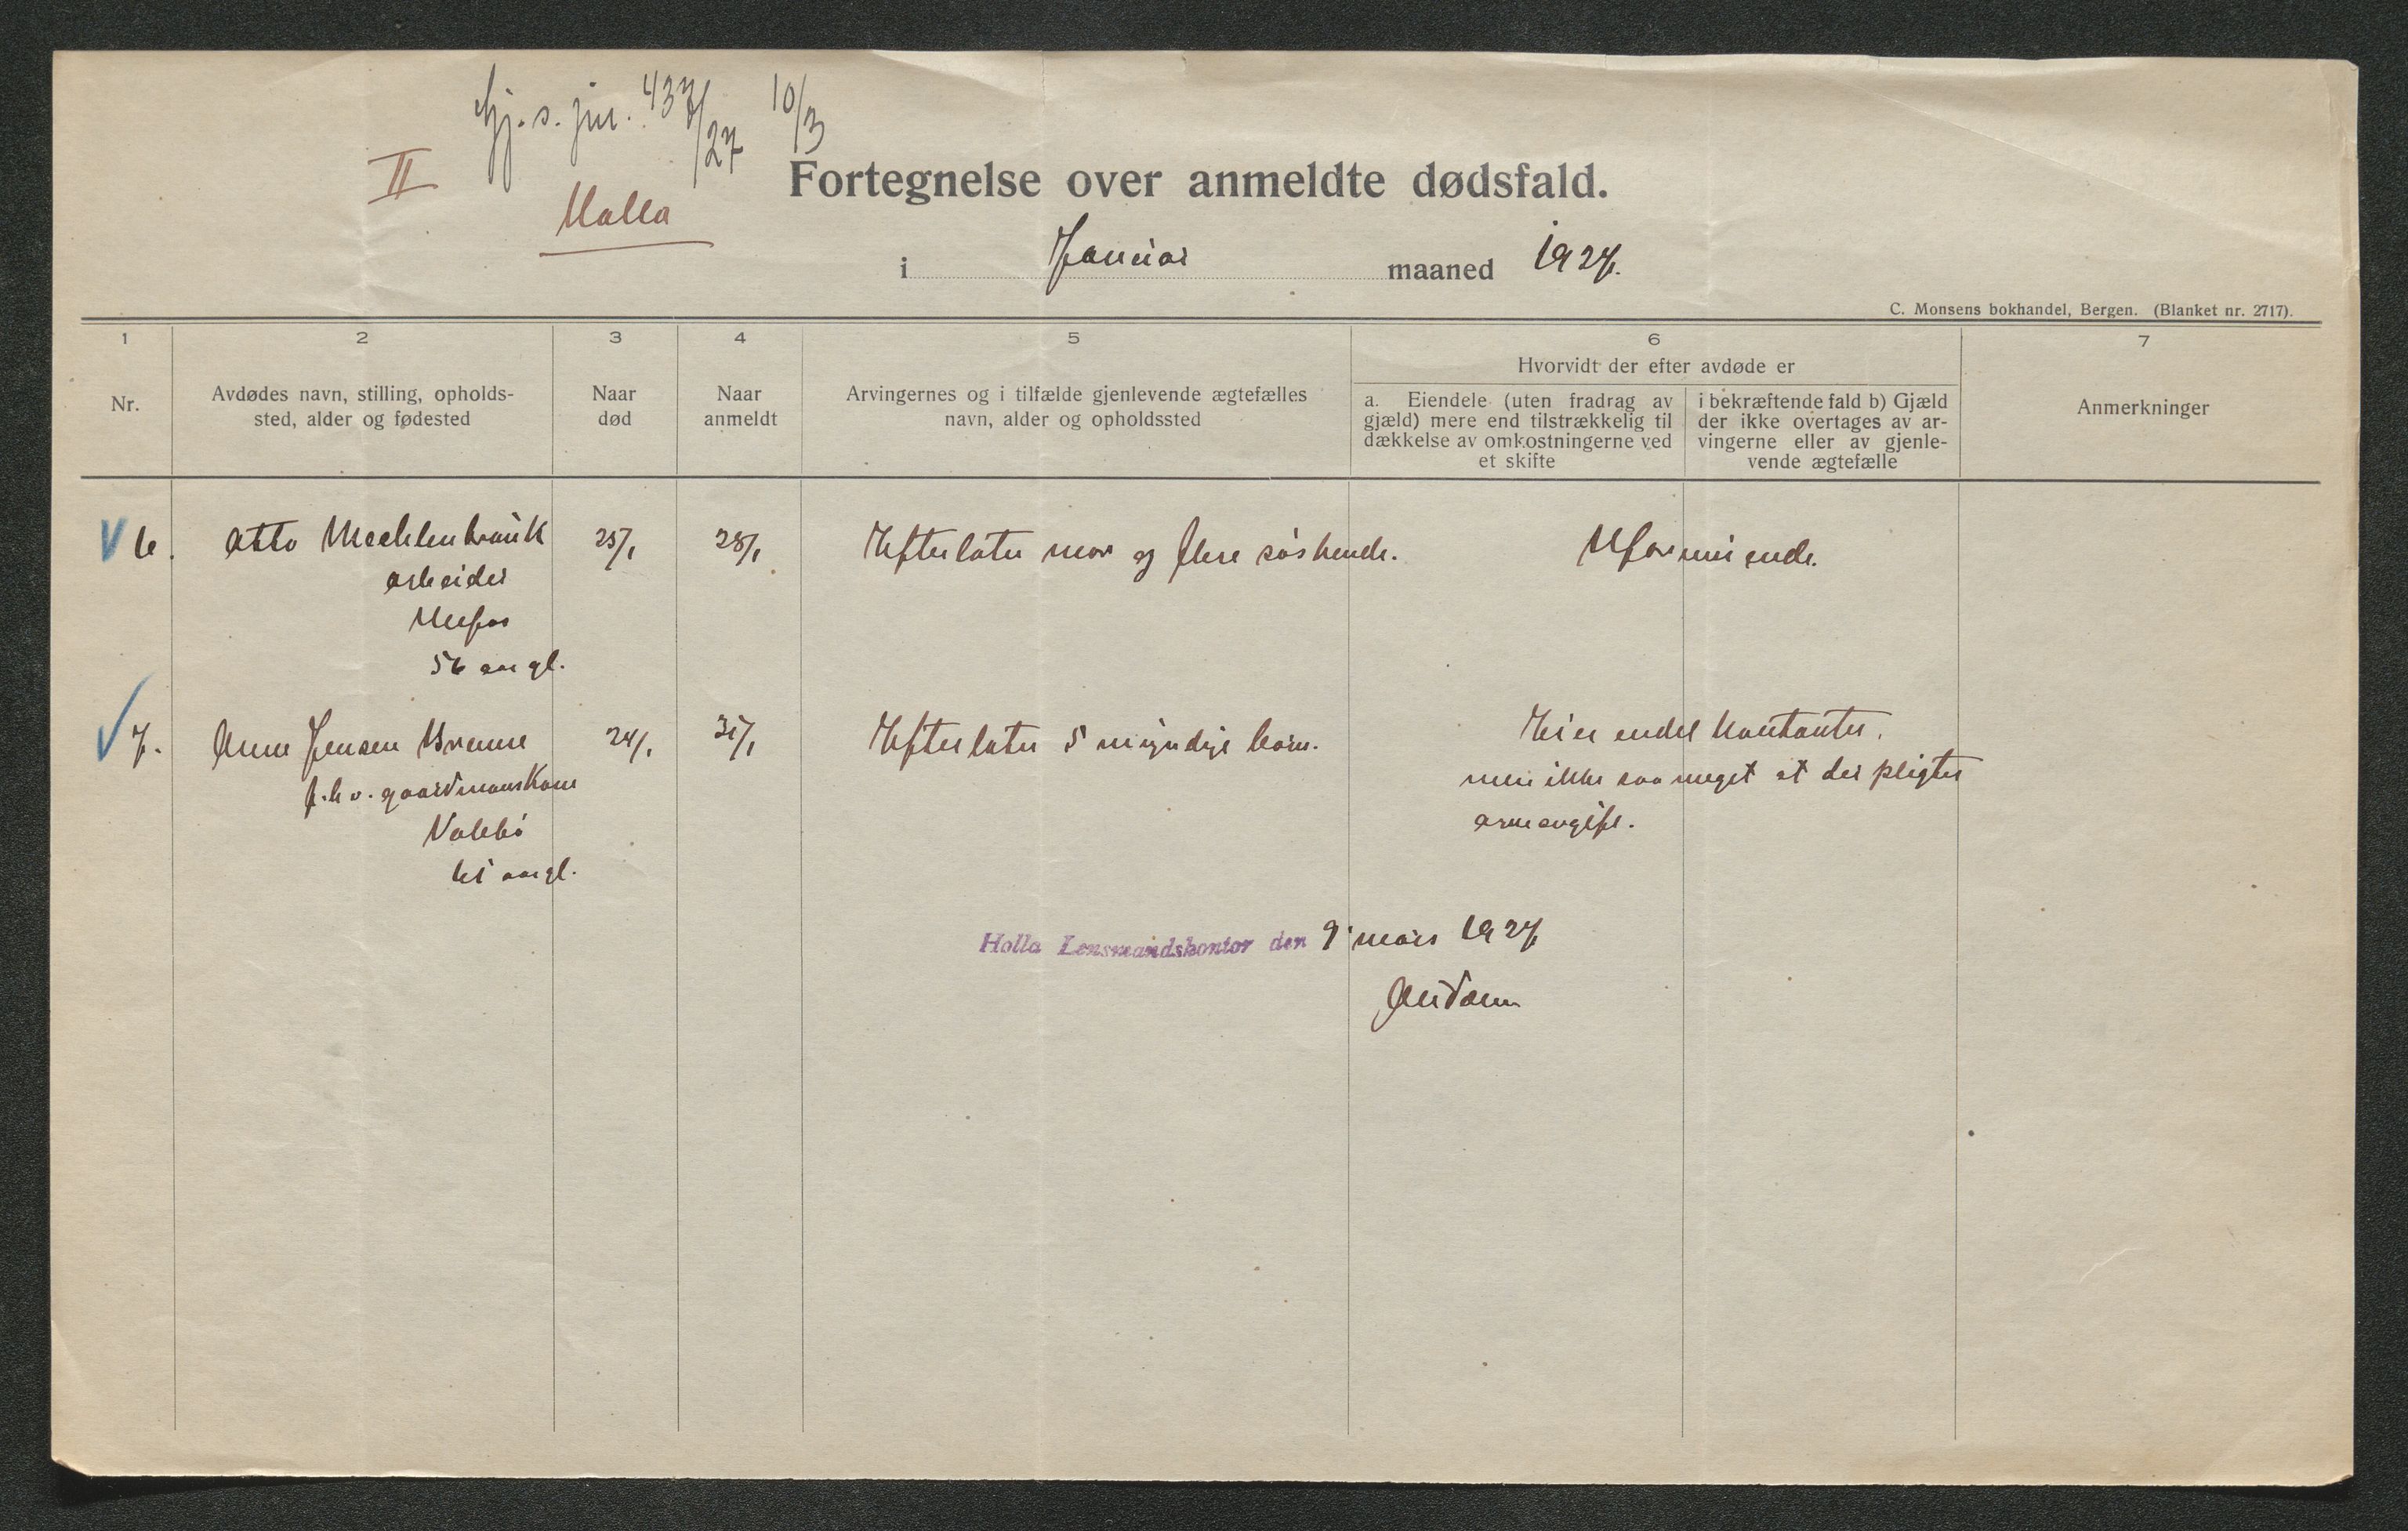 Gj. s. jnr. 437/27 10/3
II
Holla
Fortegnelse over anmeldte dødsfald.
i Januar maaned 1927.
C. Monsens bokhandel, Bergen. (Blanket nr. 2717).
1 2 3 4 5 6 7
Hvorvidt der efter avdøde er
Nr.
Avdødes navn, stilling, opholds-
sted, alder og fødested
Naar
død
Naar
anmeldt
Arvingernes og i tilfælde gjenlevende ægtefælles
navn, alder og opholdssted
a. Eiendele (uten fradrag av
gjæld) mere end tilstrækkelig til
dækkelse av omkostningerne ved
et skifte
i bekræftende fald b) Gjæld
der ikke overtages av ar-
vingerne eller av gjenle-
vende ægtefælle
Anmerkninger
6. Otto Mechlenbrauk 25/1 28/1 Efterlater mor og flere søskende. Uformuende.
arbeider
Ulefos
56 aar gl.
7. Anne Jensen Brenne 24/1 31/1 Efterlater 5 myndige barn. Eier endel kontanter,
f.h.v. gaardmanskone men ikke saa meget at der pligtes
arveavgift.
61 aar gl.
Holla Lensmandskontor den 9 mars 1927